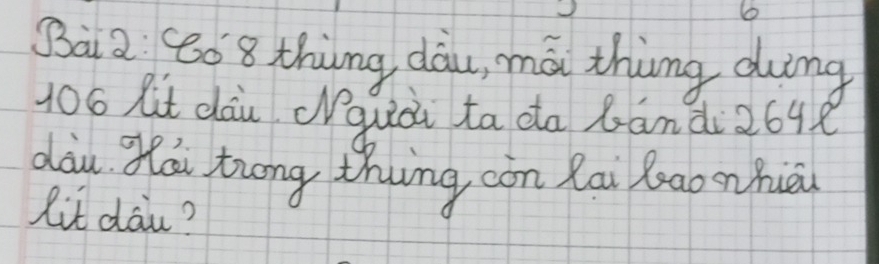 Bài 2: Có 8 thùng dầu, mỗi thùng dựng
106 lít dầu. Người ta đa bán đi 264l
dầu. Hỏi trong thùng còn lại bao nhiêu
lít dầu?